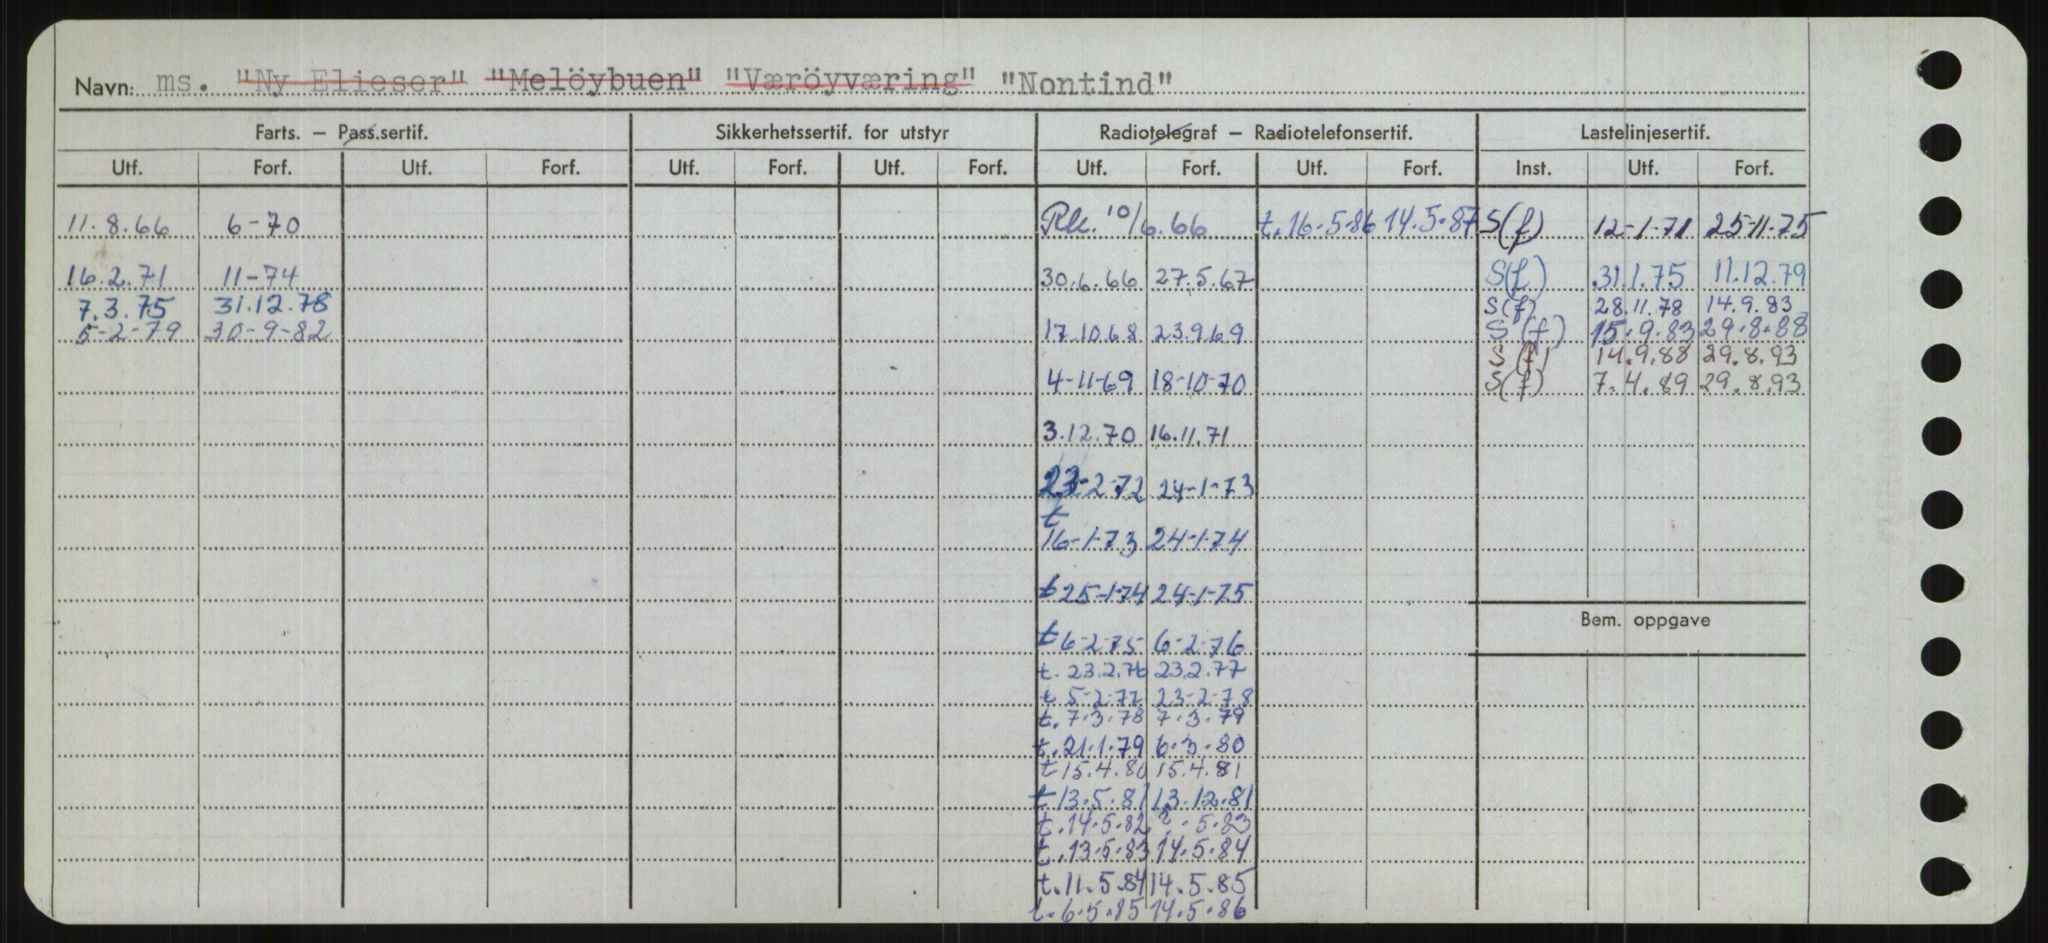 Navn: ms. "Ny Elieser" "Melöybuen" "Væröyværing" "Nontind"
Farts. – Pass.sertif. Sikkerhetssertif. for utstyr Radiotelegraf – Radiotelefonsertif. Lastelinjesertif.
Utf. Forf. Utf. Forf. Utf. Forf. Utf. Forf. Utf. Forf. Utf. Forf. Inst. Utf. Forf.
11.8.66 6-70 Rk. 10/6.66 t.16.5.86 14.5.87 S(f) 12-1-71 25-11-75
16.2.71 11-74 30.6.66 27.5.67 S(f) 31.1.75 11.12.79
7.3.75 31.12.78 S(f) 28.11.78 14.9.83
5-2-79 30-9-82 17.10.68 23.9.69 S(f) 15.9.83 29.8.88
S(f) 14.9.88 29.8.93
4-11-69 18-10-70 S(f) 7.4.89 29.8.93
3.12.70 16.11.71
23-2-72 24-1-73
t
16-1-73 24-1-74
t 25-1-74 24-1-75
Bem. oppgave
t 6-2-75 6-2-76
t. 23.2.76 23.2.77
t 5-2-77 23-2-78
t. 7.3.78 7.3.79
t. 21.1.79 6.3.80
t 15.4.80 15.4.81
t 13.5.81 13.12.81
t. 14.5.82 ?.5.83
t. 13.5.83 14.5.84
t. 11.5.84 14.5.85
t. 6.5.85 14.5.86